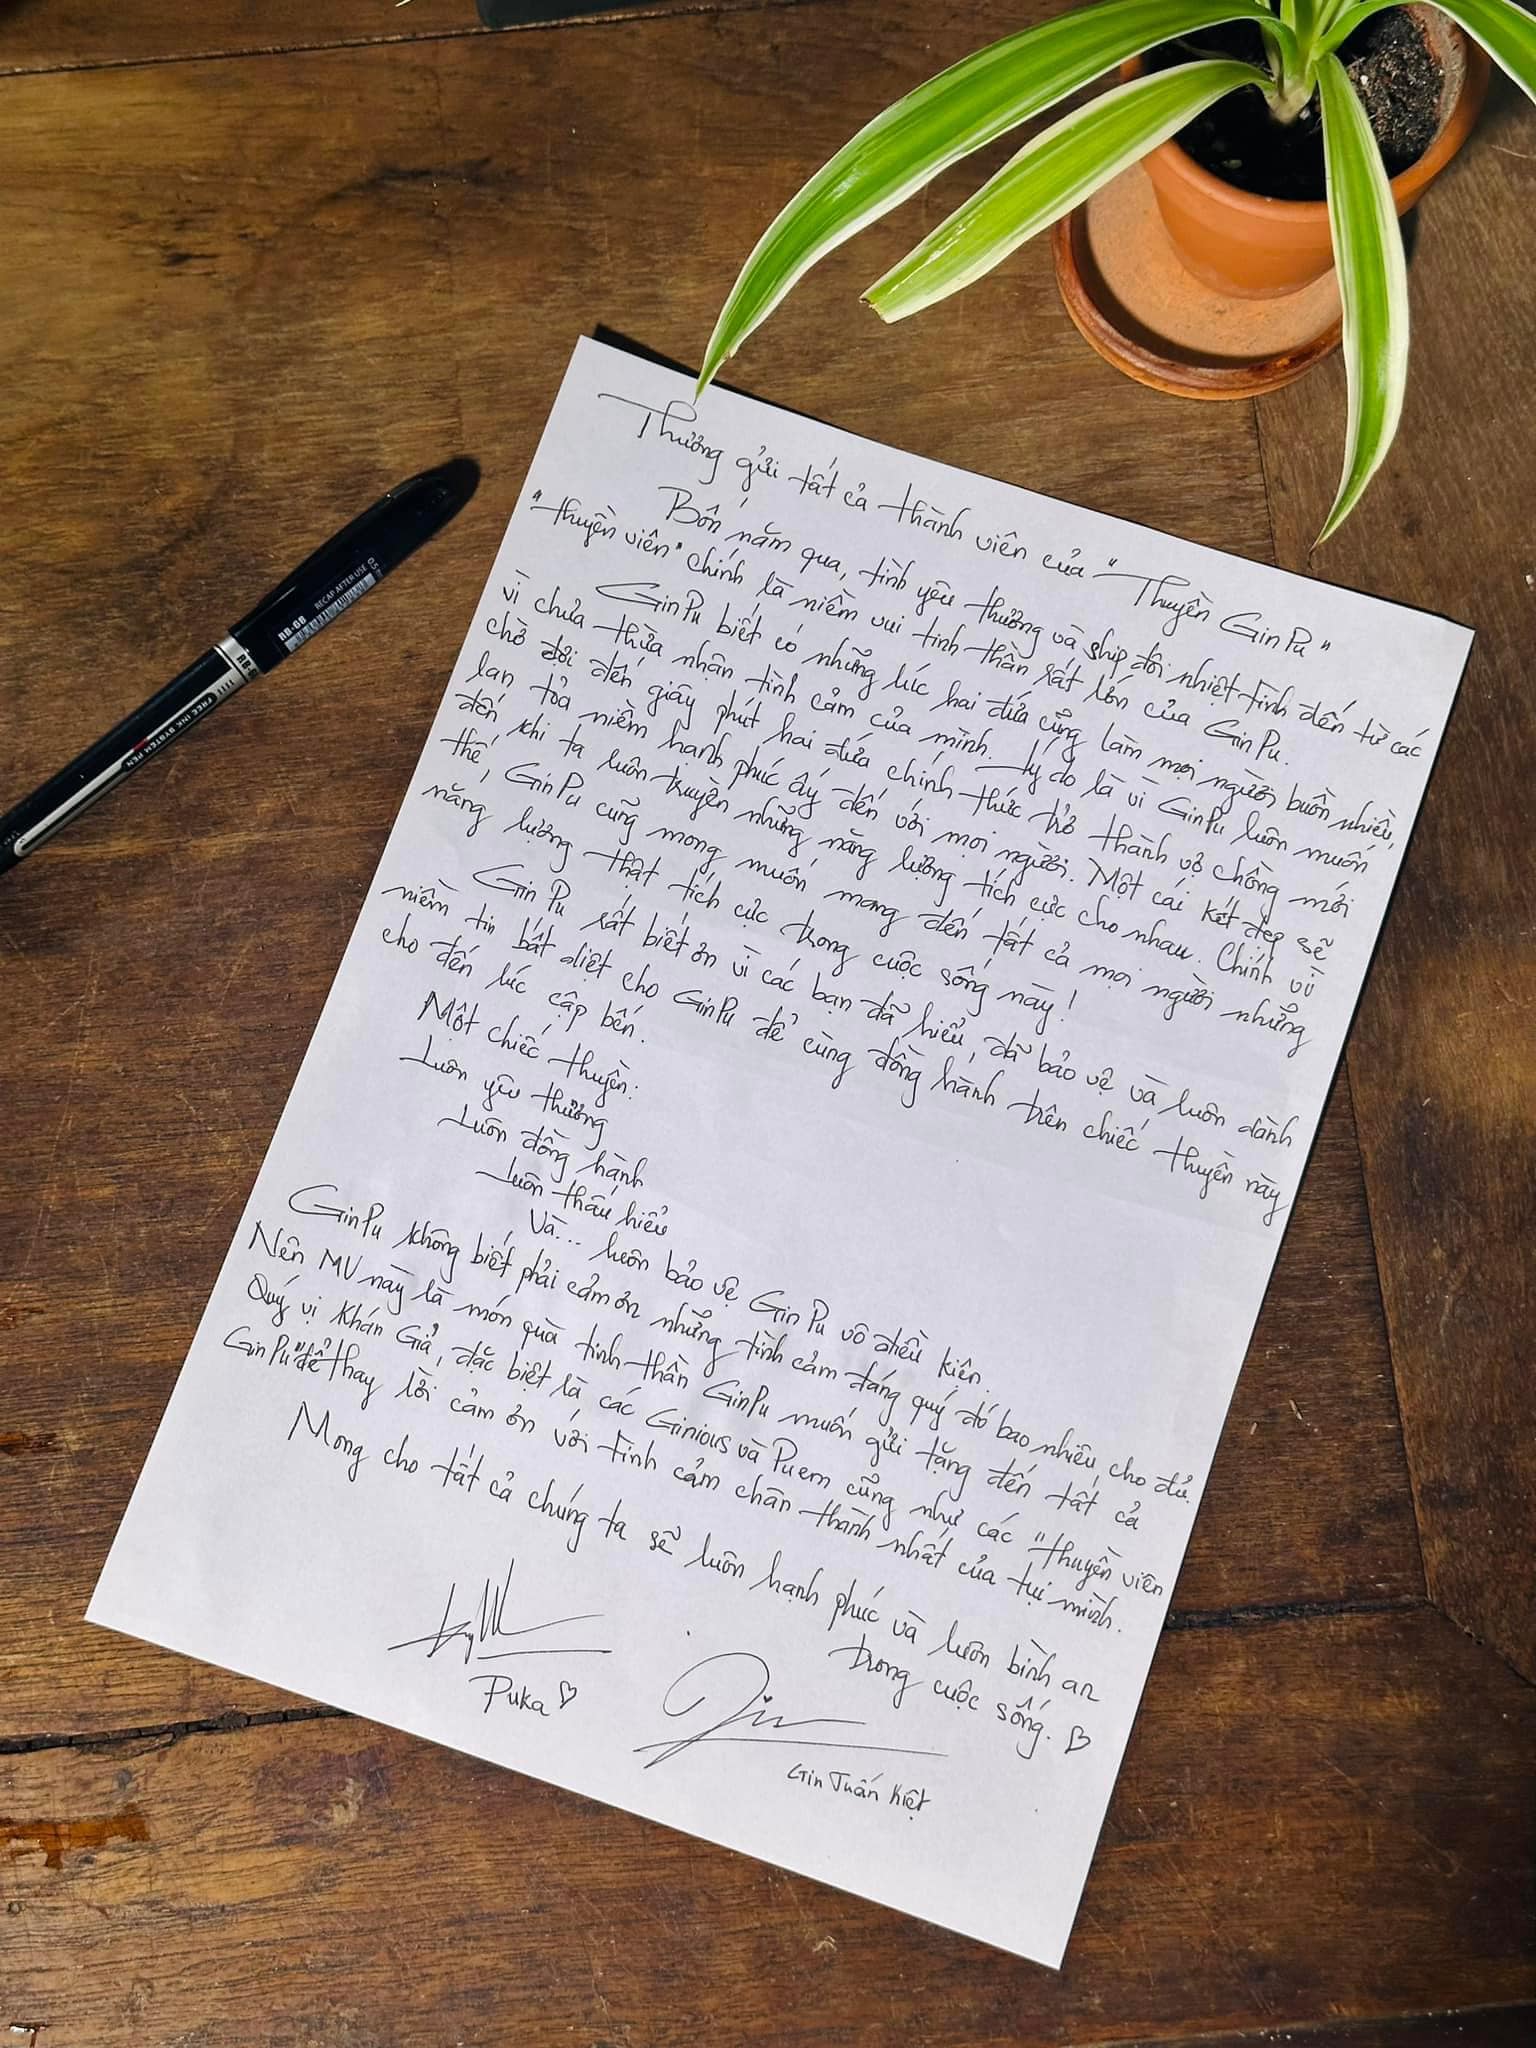 Thương gửi tất cả thành viên của "Thuyền GinPu"
Bốn năm qua, tình yêu thương và ship đôi nhiệt tình đến từ các
"thuyền viên" chính là niềm vui tinh thần rất lớn của GinPu.
GinPu biết có những lúc hai đứa cũng làm mọi người buồn nhiều,
vì chưa thừa nhận tình cảm của mình. Lý do là vì GinPu luôn muốn
chờ đợi đến giây phút hai đứa chính thức trở thành vợ chồng mới
lan tỏa niềm hạnh phúc ấy đến với mọi người. Một cái kết đẹp sẽ
đến khi ta luôn truyền những năng lượng tích cực cho nhau. Chính vì
thế, GinPu cũng mong muốn mang đến tất cả mọi người những
năng lượng thật tích cực trong cuộc sống này!
GinPu rất biết ơn vì các bạn đã hiểu, đã bảo vệ và luôn dành
niềm tin bất diệt cho GinPu để cùng đồng hành trên chiếc thuyền này
cho đến lúc cập bến.
Một chiếc thuyền:
Luôn yêu thương
Luôn đồng hành
Luôn thấu hiểu
Và... luôn bảo vệ GinPu vô điều kiện.
GinPu không biết phải cảm ơn những tình cảm đáng quý đó bao nhiêu cho đủ.
Nên MV này là món quà tinh thần GinPu muốn gửi tặng đến tất cả
Quý vị Khán Giả, đặc biệt là các Ginious và Puem cũng như các "thuyền viên
GinPu" để thay lời cảm ơn với tình cảm chân thành nhất của tụi mình.
Mong cho tất cả chúng ta sẽ luôn hạnh phúc và luôn bình an
trong cuộc sống. ♡
Puka ♡
Gin
Gin Tuấn Kiệt
RB-68 RECAP AFTER USE
FREE INK SYSTEM PEN